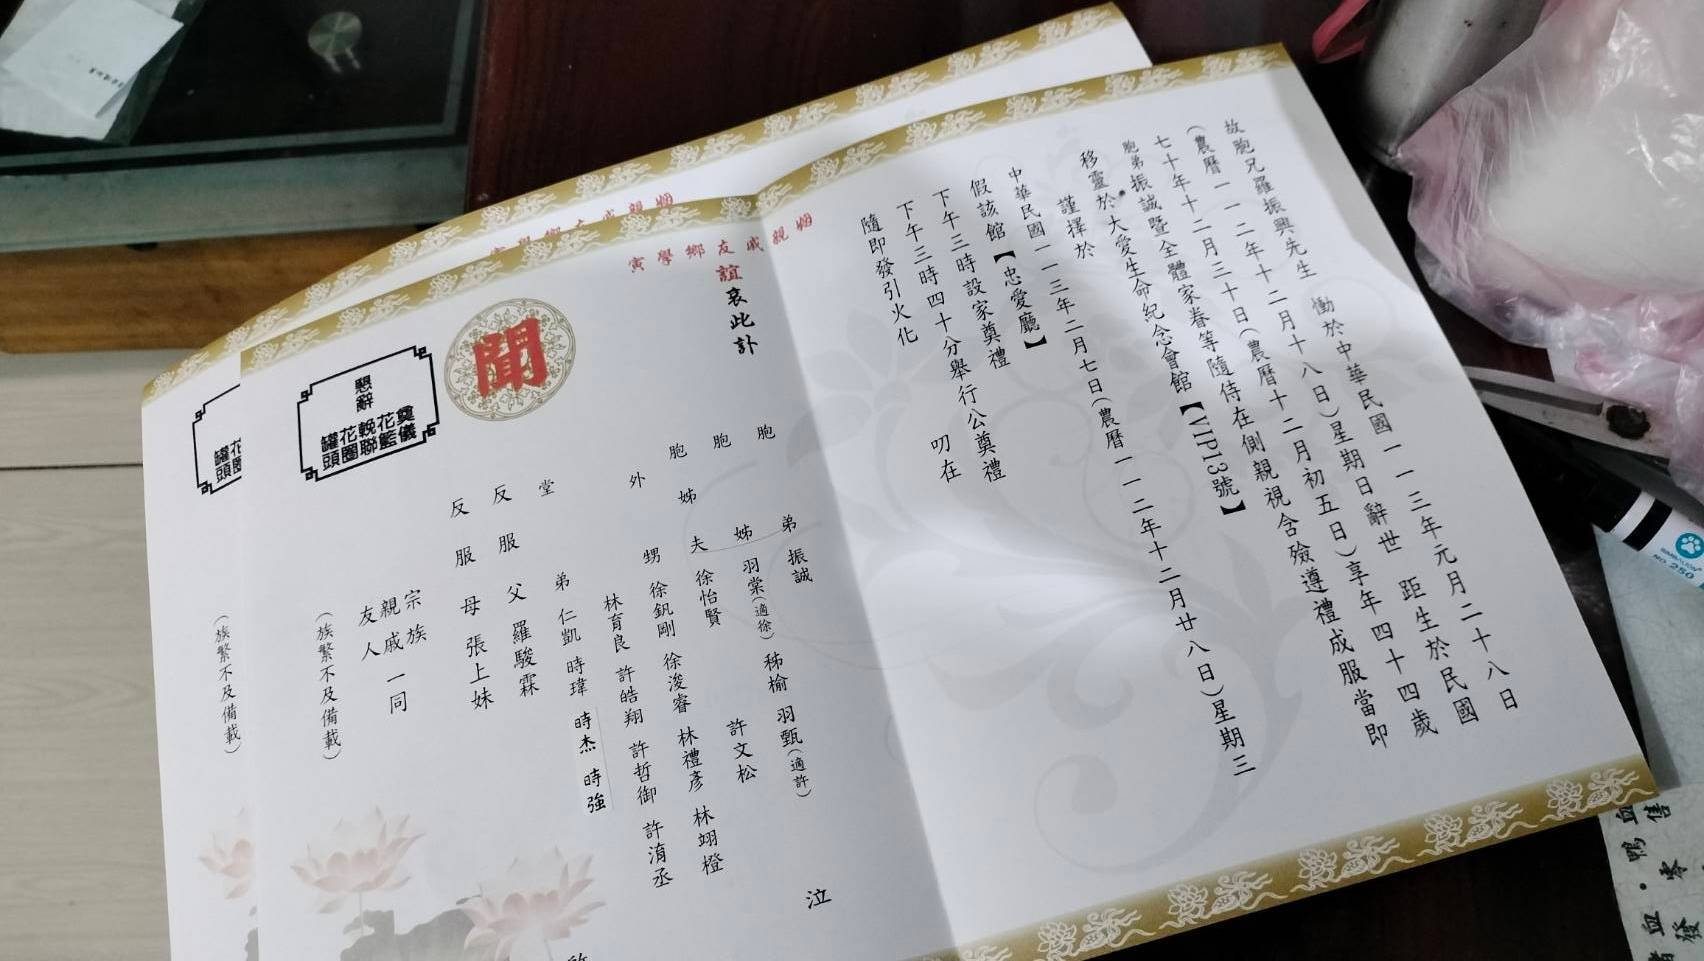 故胞兄羅振興先生 慟於中華民國一一三年元月二十八日
(農曆一一二年十二月十八日)星期日辭世 距生於民國
七十年十二月三十日(農曆十二月初五日)享年四十四歲
胞弟振誠暨全體家眷等隨侍在側親視含殮遵禮成服當即
移靈於大愛生命紀念會館【VIP13號】
謹擇於
中華民國一一三年二月七日(農曆一一二年十二月廿八日)星期三
假該館【忠愛廳】
下午三時設家奠禮
下午三時四十分舉行公奠禮
隨即發引火化 叨在
姻親戚友鄉學寅
誼哀此訃
聞
胞弟 振誠
胞姊 羽棠(適徐) 秭榆 羽甄(適許)
胞姊夫 徐怡賢 許文松
外甥 徐釩剛 徐浚睿 林禮彥 林翊橙
林育良 許皓翔 許哲御 許淯丞
堂弟 仁凱 時瑋 時杰 時強
反服父 羅駿霖
反服母 張上妹
宗族
親戚一同
友人
(族繁不及備載)
泣
懇辭
奠儀
花籃
輓聯
花圈
罐頭
姻親戚友
花圈
罐頭
(族繁不及備載)
SIMBALION
NO.250
血·鴨血
售零
發